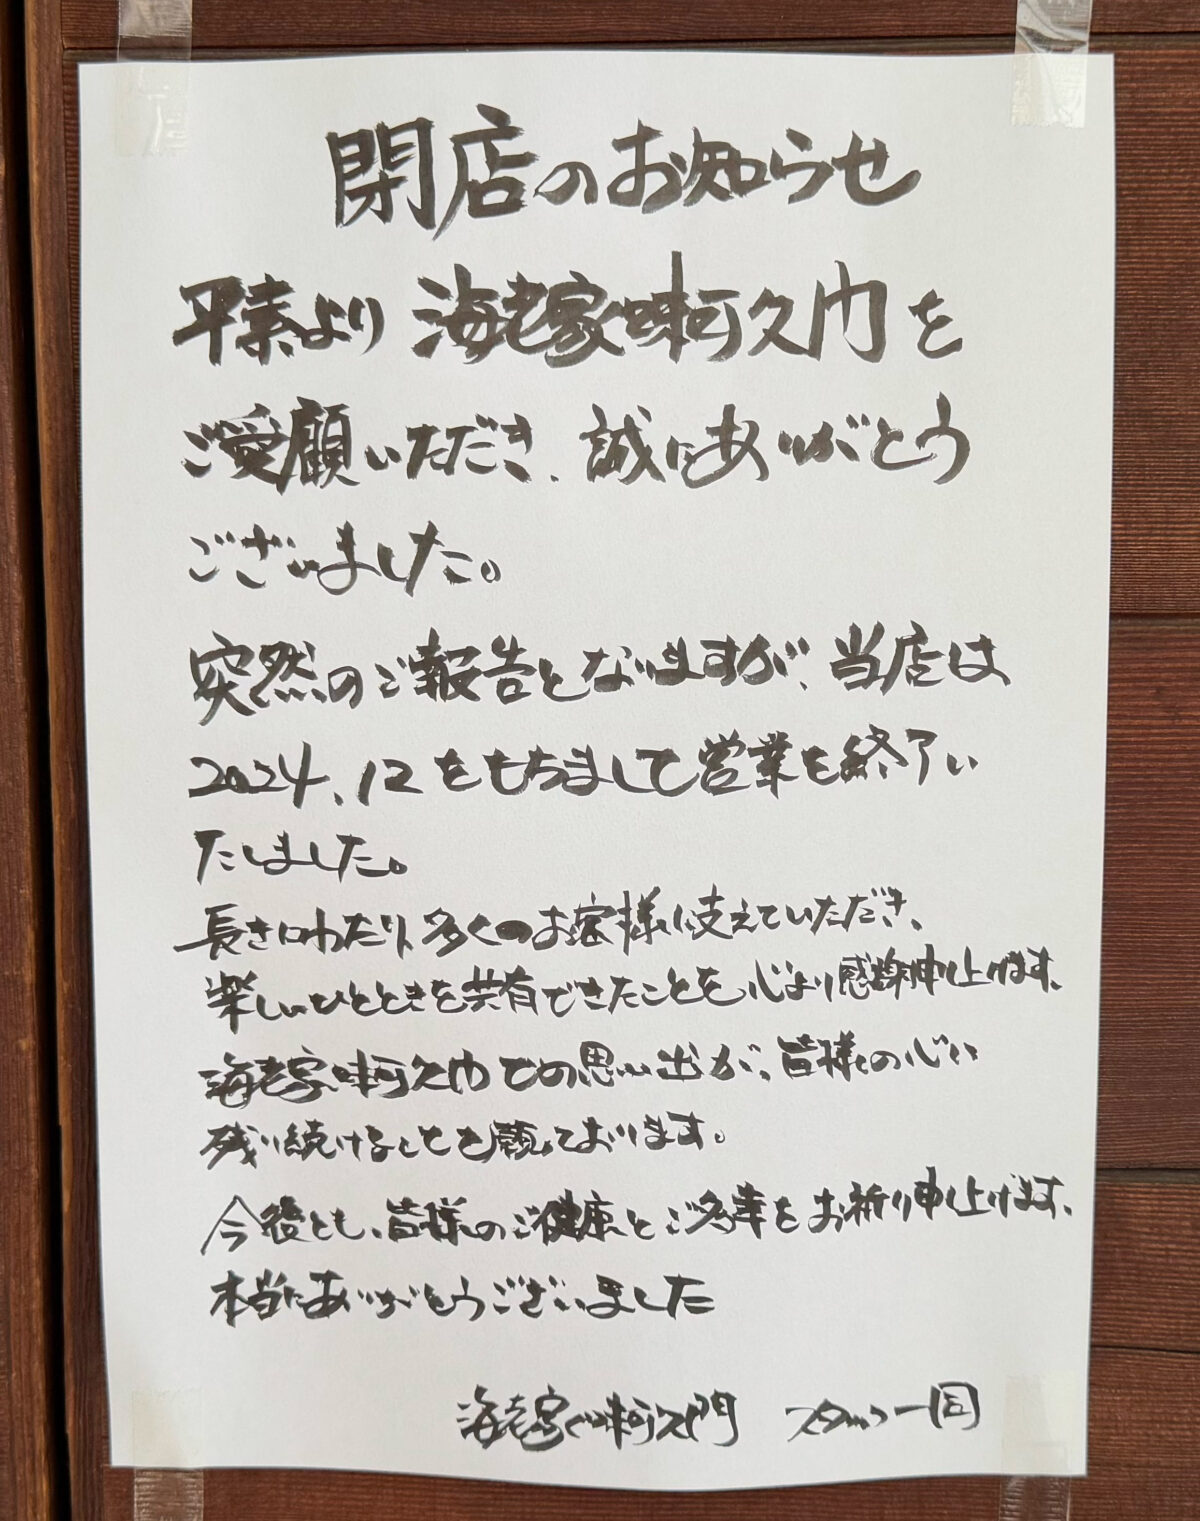 閉店のお知らせ
平素より 海老家味阿久門を
ご愛顧いただき、誠にありがとう
ございました。
突然のご報告となりますが、当店は
2024、12をもちまして営業を終了い
たしました。
長きにわたり、多くのお客様に支えていただき、
楽しいひとときを共有できたことを、心より感謝申し上げます。
海老家味阿久門での思い出が、皆様の心に
残り続けることを願っております。
今後とも、皆様のご健康とご多幸をお祈り申し上げます。
本当にありがとうございました
海老家味阿久門 スタッフ一同